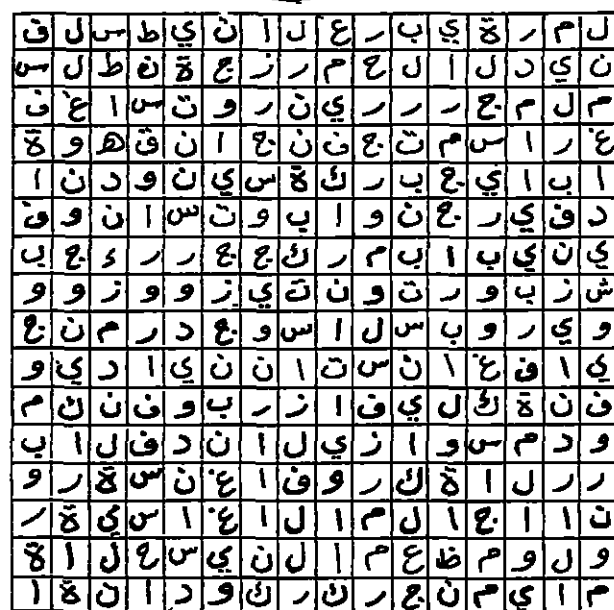 ل م ر ة ي ب ر ع ل ا ن ي ط س ل ف
ن ي د ل ا ل ح م ر ز ج ة ن ط ل س
م ل م ج ر ر ر ي ن ر و ت س ا غ ف
غ ر ا س م ت ج ف ن ج ا ن ق ه و ة
ا ب ا ي ج ب ر ك ة س ي ن و د ن ا
د ف ي ر ج ن و ا ب و ت س ا ن و ف
ي ن ي ب ا ب م ر ك ج ج ر ر ء ج ب
ش ز ب و ر ت و ن ت ي ز و و ز و و
و ي ر و ب س ل ا س و ج د ر م ن ج
ي ا ف غ ا ن س ت ا ن ن ي ا د ي و
ف ن ة ك ل ي ف ا ز ر ب و ف ن ك م
و د م س و ا ز ي ل ا ن د ف ل ا ب
ر ر ل ا ة ك ر و ف ا غ ن س ة ر و
ت ا ا ج ا ل م ا ل ا غ ا س ي ة ر
و ل و م ظ ع م ا ل ن ي س ح ل ا ة
م ا ي م ن ج ر ك ر ك و د ا ن ة ا